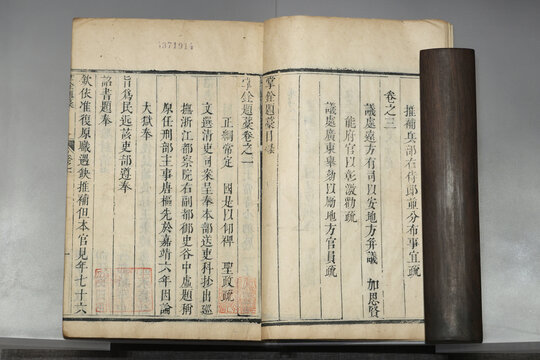 推補兵部右侍郎並分布事宜疏
卷之三
議處遠方有司以安地方并議 加恩賢
能府官以彰激勸疏
議處廣東舉劾以勵地方官員疏
掌銓題藁目錄
掌銓題藁卷之一
正綱常定 國是以仰裨 聖政疏
文選清吏司案呈奉本部送吏科抄出巡
撫浙江都察院右副都御史谷中虛題稱
原任刑部主事唐樞先於嘉靖六年因論
大獄奉
旨爲民迄該吏部遵奉
詔書題奉
欽依准復原職遇缺推補但本官見年七十六
4371914